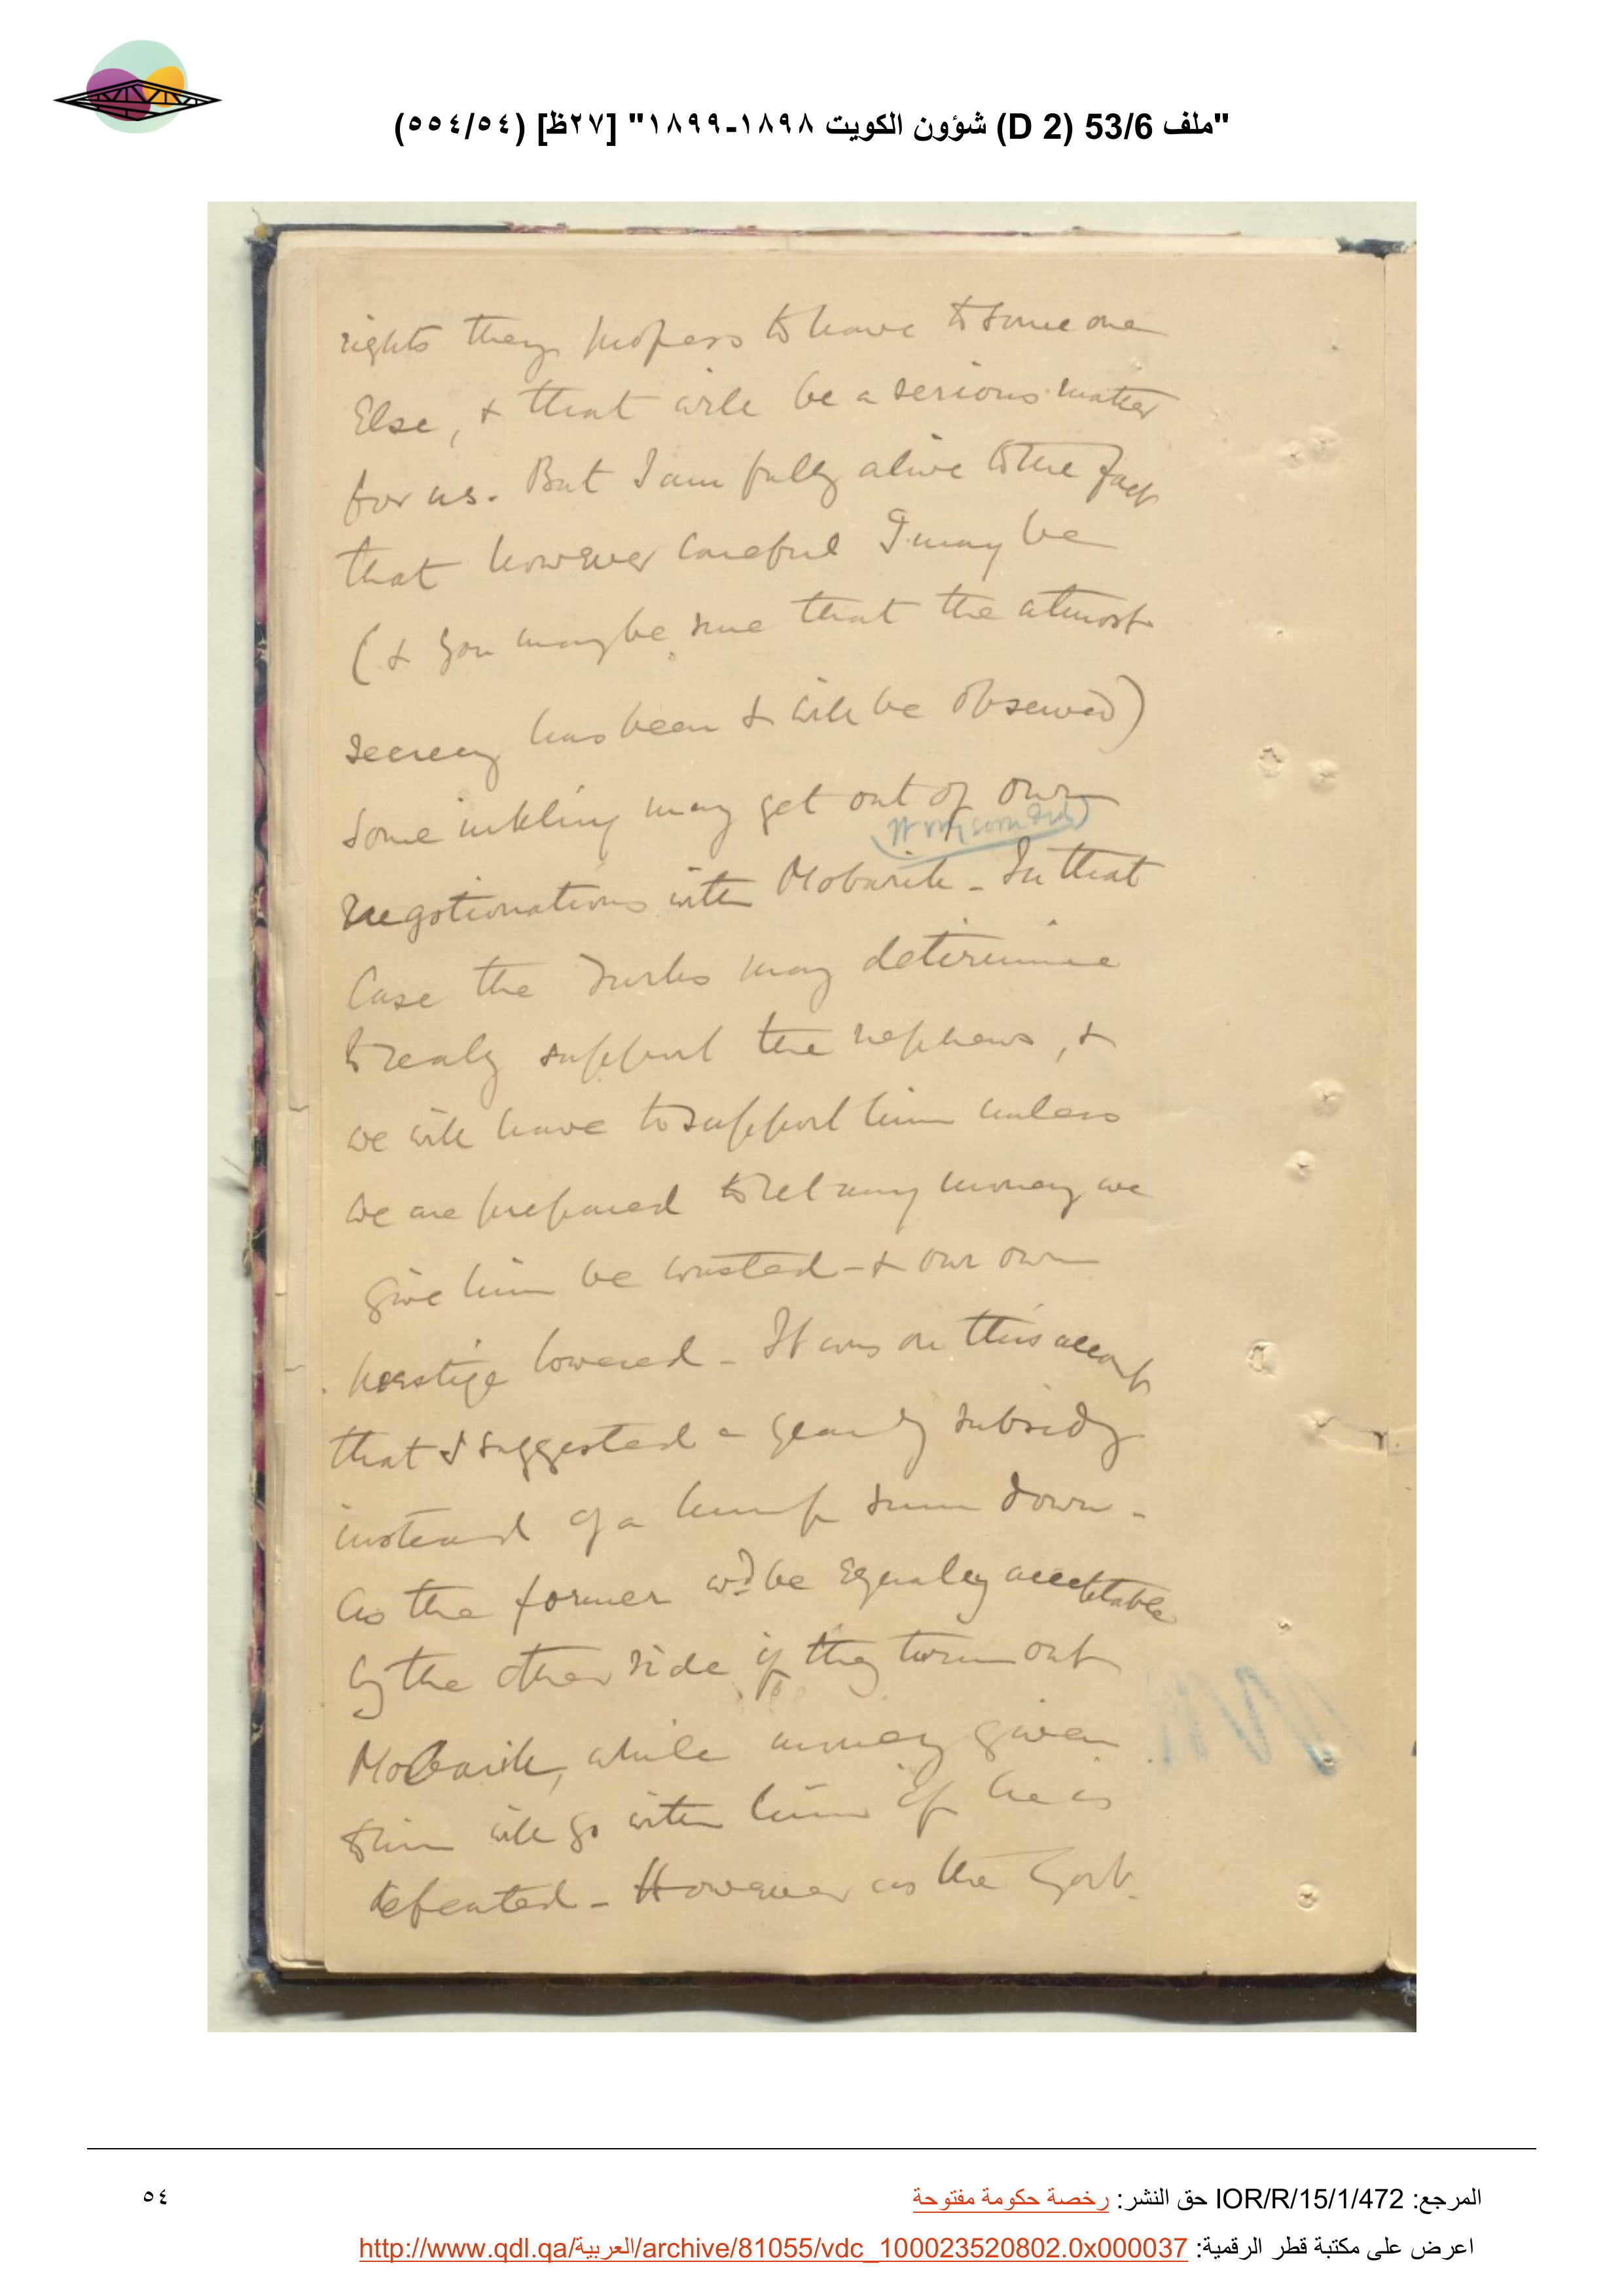 "ملف 53/6 (D 2) شؤون الكويت ١٨٩٨-١٨٩٩" [٢٧ظ] (٥٥٤/٥٤)
rights they profess to have to some one
Else, & that will be a serious matter
for us. But I am fully alive to the fact
that however careful I may be
(& you may be sure that the utmost
secrecy has been & will be observed)
some inkling may get out of our
negotionations with Mobarik - In that
Case the Turks may determine
to realy support the nephews, &
we will have to support him unless
we are prepared to let any money we
give him be wasted - & our own
prestige lowered - It was on this account
that I suggested a yearly subsidy
instead of a lump sum down -
as the former wd be Equaley acceptable
by the other side if they turn out
Mobarik, while money given
him will go with him if he is
defeated - However as the Govt.
المرجع: IOR/R/15/1/472 حق النشر: رخصة حكومة مفتوحة
٥٤
اعرض على مكتبة قطر الرقمية: http://www.qdl.qa/العربية/archive/81055/vdc_100023520802.0x000037